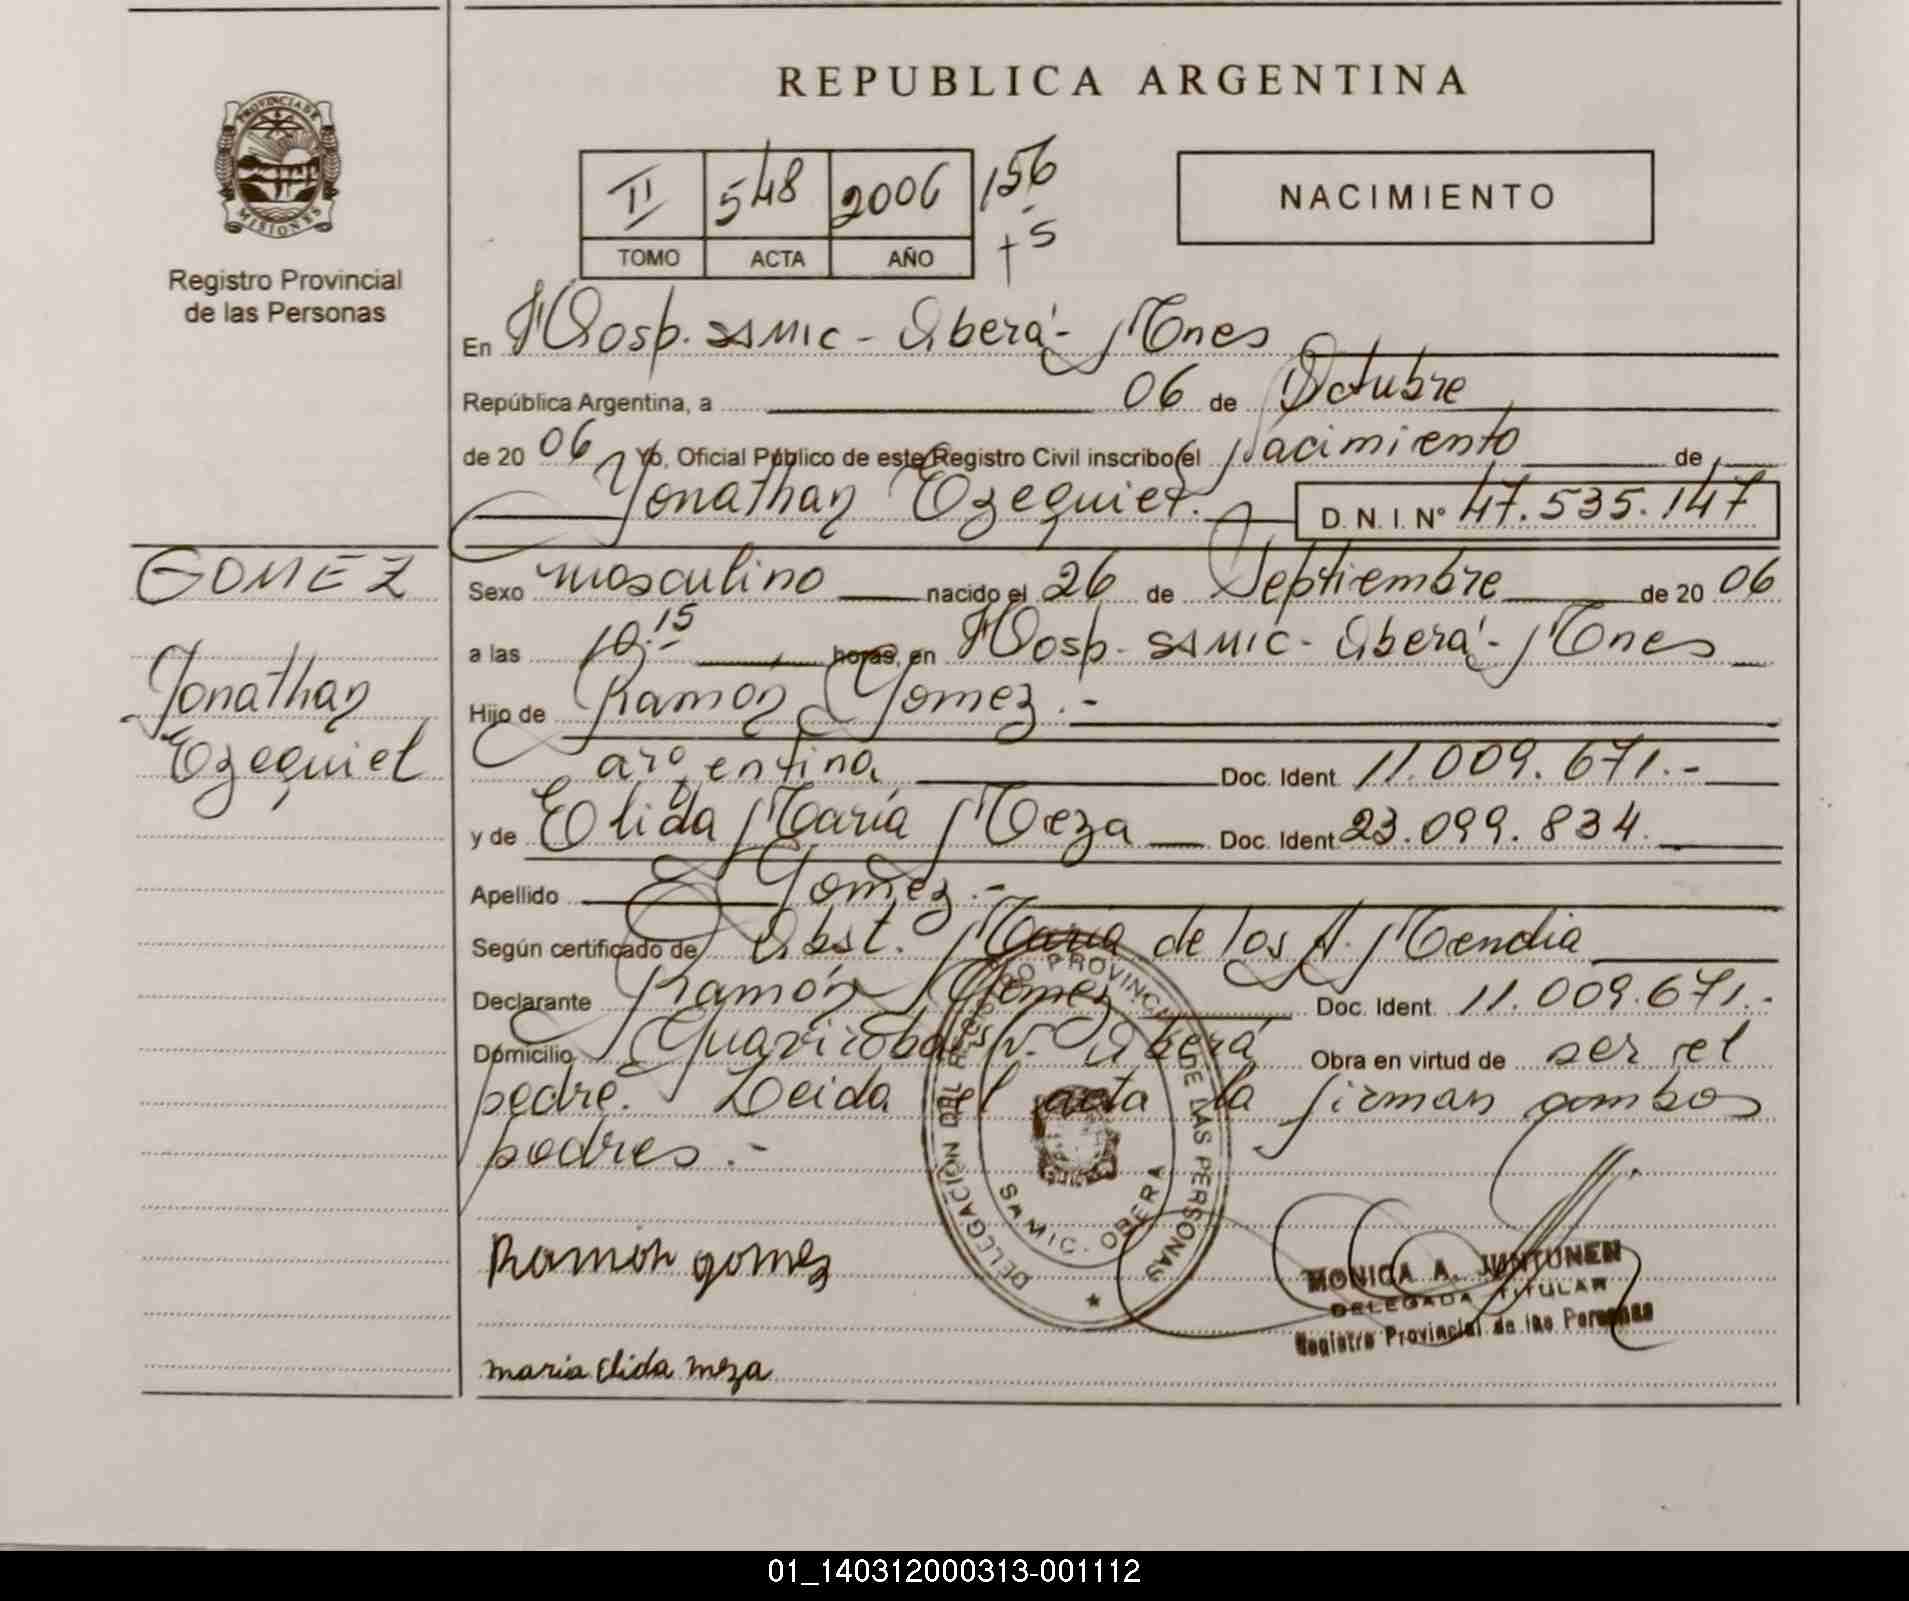 REPUBLICA ARGENTINA
PROVINCIA DE MISIONES
Registro Provincial
de las Personas
II 548 2006 156
TOMO ACTA AÑO + 5
NACIMIENTO
En Hosp. SAMIC - Oberá - Mnes
República Argentina, a 06 de Octubre
de 20 06 Yo, Oficial Público de este Registro Civil inscribo el Nacimiento de
Jonathan Ezequiel. D. N. I. N° 47.535.147
GOMEZ
Jonathan
Ezequiel
Sexo masculino nacido el 26 de Septiembre de 20 06
a las 10.15 horas, en Hosp. SAMIC - Oberá - Mnes
Hijo de Ramón Gomez.-
argentina Doc. Ident. 11.009.671.-
y de Elida María Meza Doc. Ident 23.099.834.
Apellido Gomez.-
Según certificado de Obst. María de los A. Mendia
Declarante Ramón Gomez Doc. Ident. 11.009.671.-
Domicilio Guaviroba s/n. Oberá Obra en virtud de ser el
padre. Leida el acta la firman ambos
padres.-
DELEGACION DEL REGISTRO PROVINCIAL DE LAS PERSONAS
SAMIC - OBERA
Ramon gomez
MONICA A. JUNTUNEN
DELEGADA TITULAR
Registro Provincial de las Personas
maria Elida meza
01_140312000313-001112